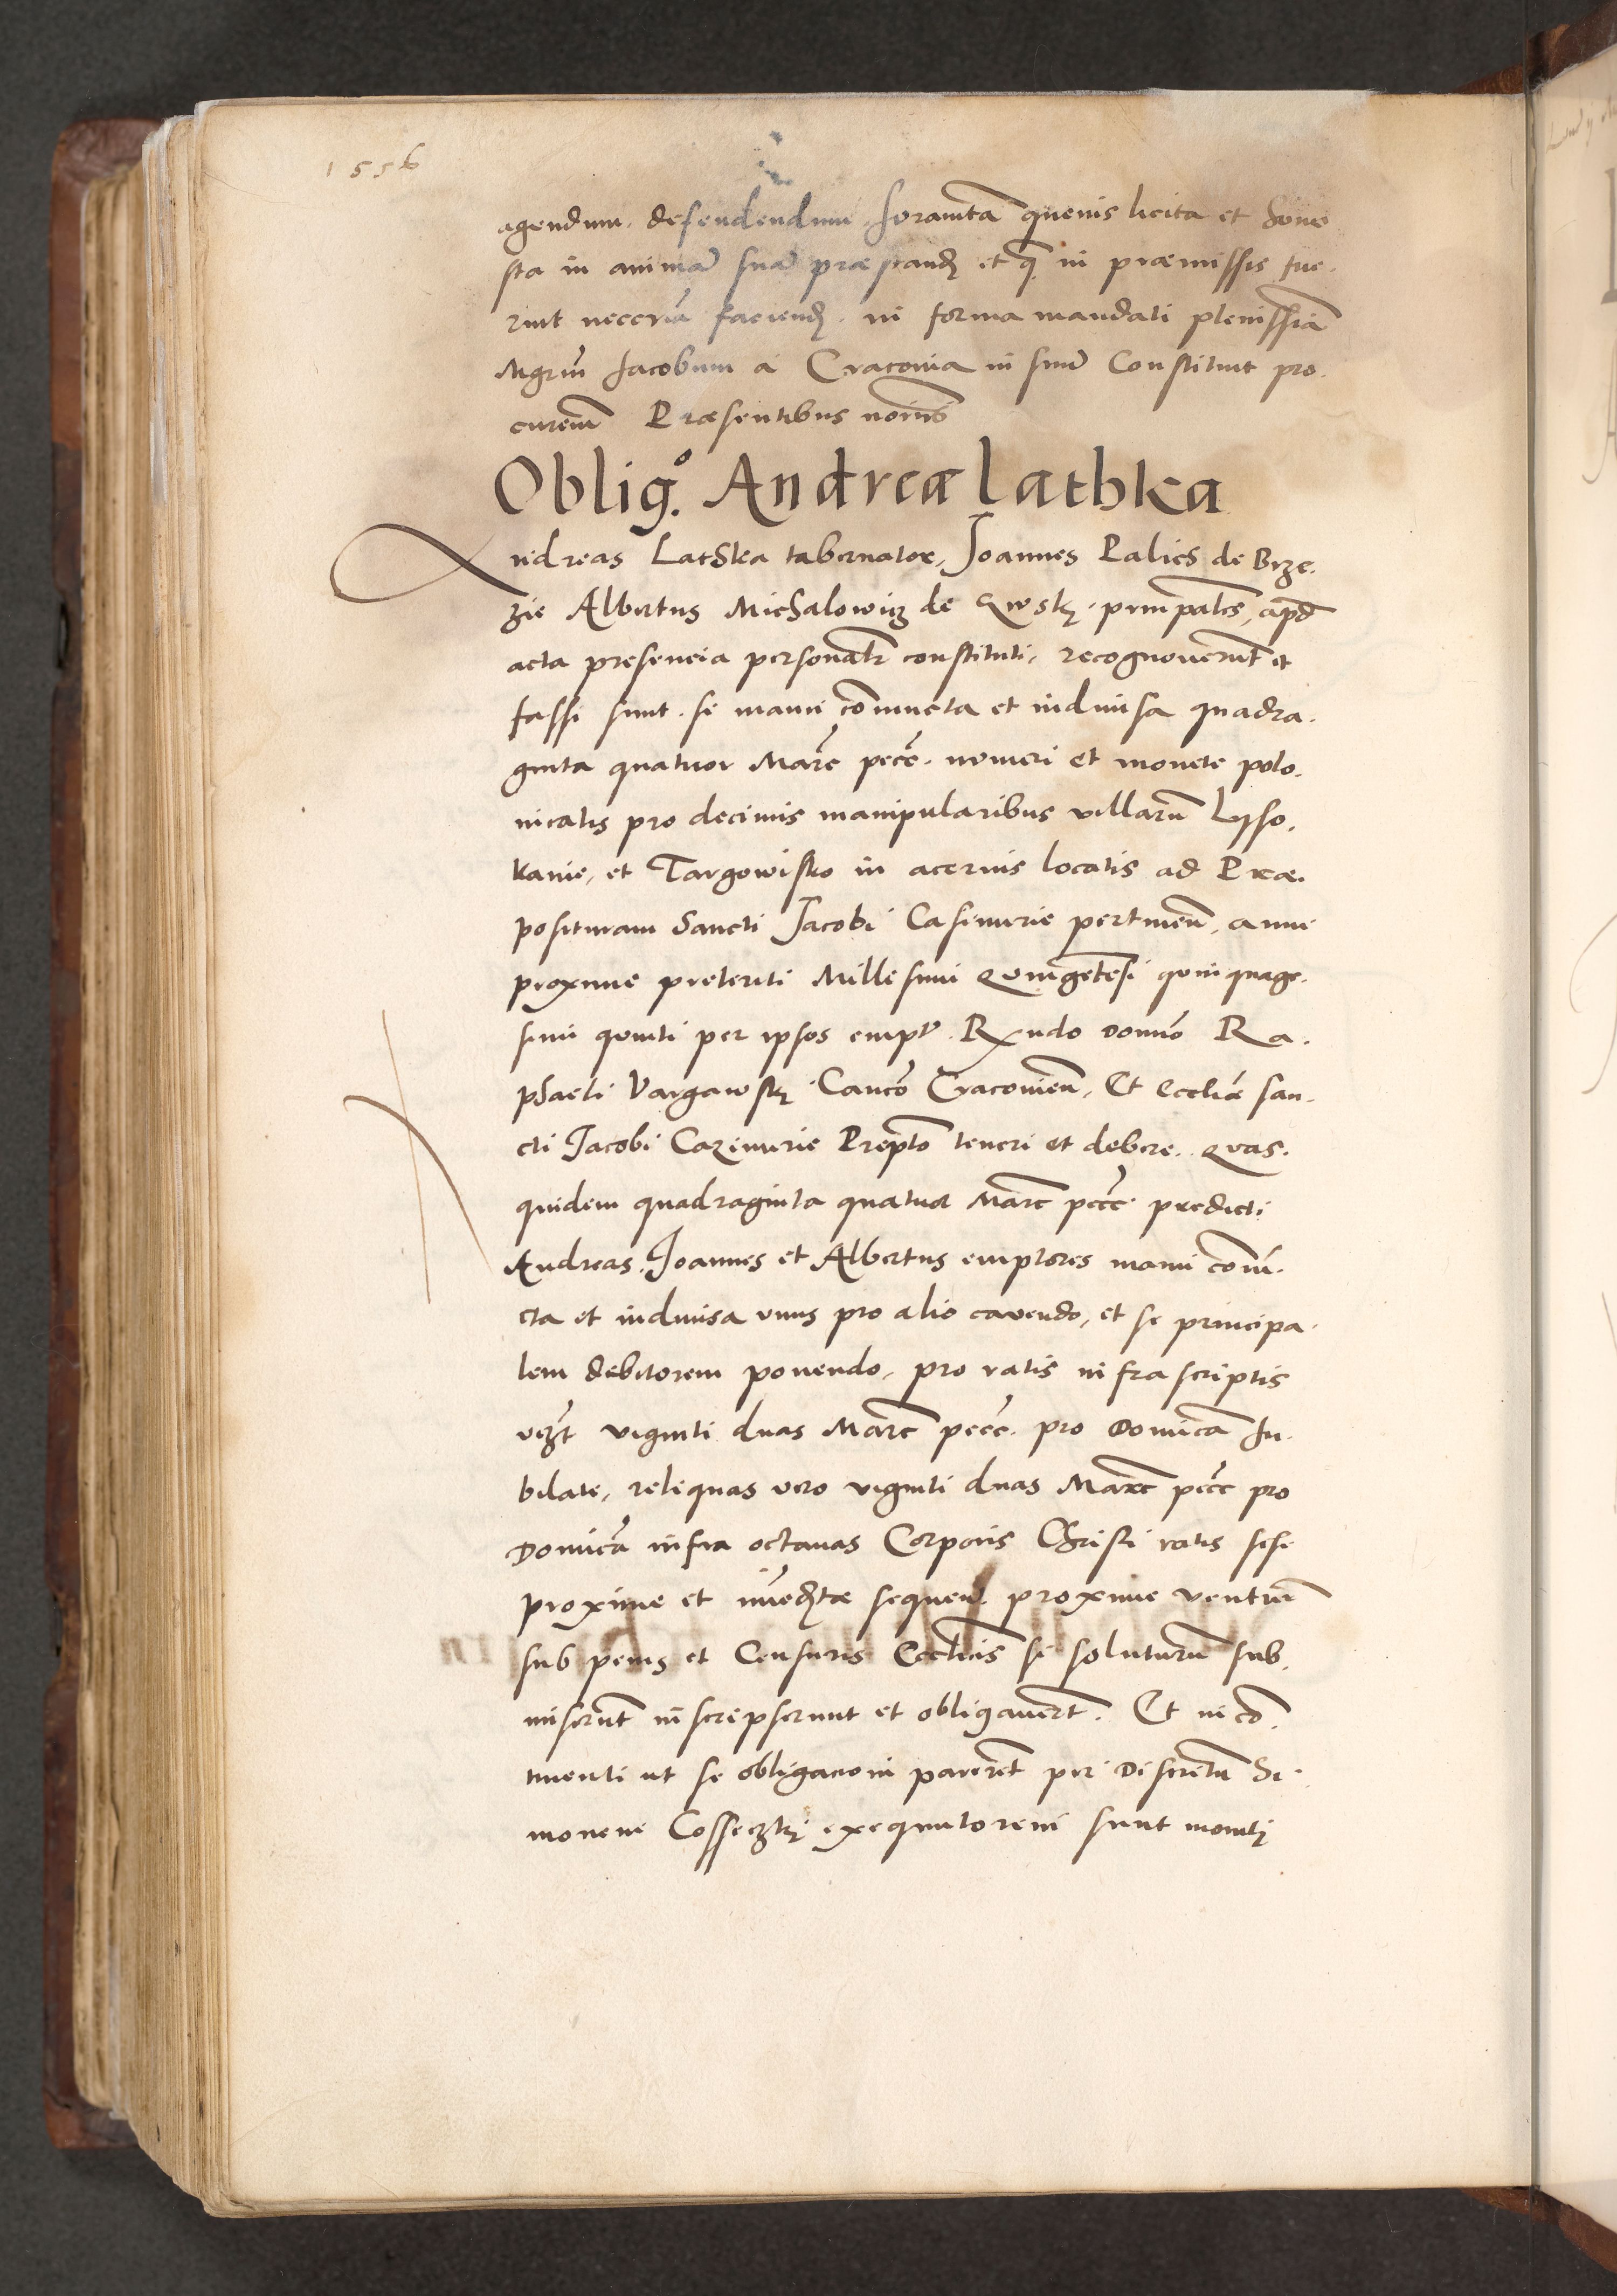 1556
agendum. defendendum. Joramta quevis licita et hone
sta in animã suã præstand et q in præmissis fue.
rint necceria faciend. in forma mandati plenissia
Mgrm Jacobum a Cracovia in suũ Constituit pro.
curem Præsentibus noriis
Oblig.º Andreæ Lathka
Andreas Lathka tabernator, Joannes Palies de Brze.
zie Albertus Michalowicz de principales, apd
acta presencia personalr constituti, recognoverunt et
fassi sunt. se manu coniuncta et indivisa quadra.
ginta quatuor Marc pecc. numeri et monete polo.
nicalis pro decimis manipularibus villarũ Lysso.
kanie, et Targowisko in acervis locatis ad Præ.
posituram Sancti Jacobi Casimirie pertinen, anni
proxime preteriti Millesimi Quingetesi quinquage.
simi quinti per ipsos empt. Rndo Domno Ra.
phaeli Vargawski Canco Cracovien, Et Eccliæ san.
cti Jacobi Cazimirie Prepto teneri et debere. Quas.
quidem quadraginta quatuor Marc pecc predicti
Andreas, Joannes et Albertus emptores manu coniũ.
cta et indivisa unus pro alio cavendo, et se principa.
lem debitorem ponendo, pro ratis infra scriptis
vizt viginti duas Marc pecc. pro Dominica Ju.
bilate, reliquas vero viginti duas Marc pecc pro
Dominica infra octavas Corporis Christi ratis sese
proxime et imediate sequen proxime ventur
sub penis et Censuris Ecclicis se soluturũ sub.
miserunt inscripserunt et obligavert. Et in con
tinenti ut se obligacioni parerent per Discretum Si.
monem Cosseczki exequutorem sunt moniti